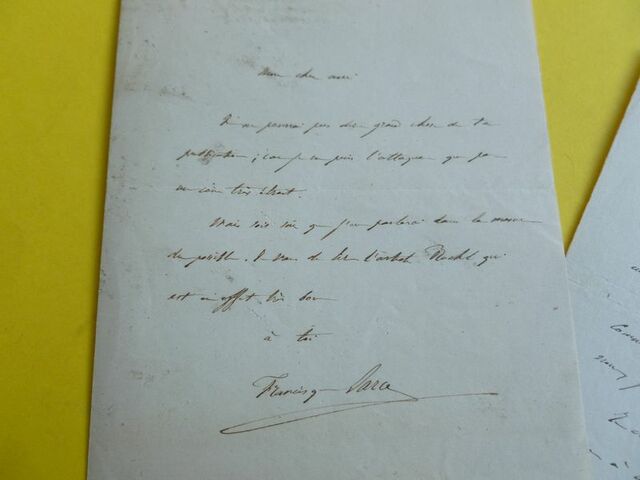 Mon cher ami
Je ne pourrai pas dire grand chose de ta
publication ; car je ne puis l'attaquer que par
un coin très étroit.
Mais sois sûr que j'en parlerai dans la mesure
du possible. Je viens de lire l'article qui
est en effet très bon
à toi
Francisque Sarcey